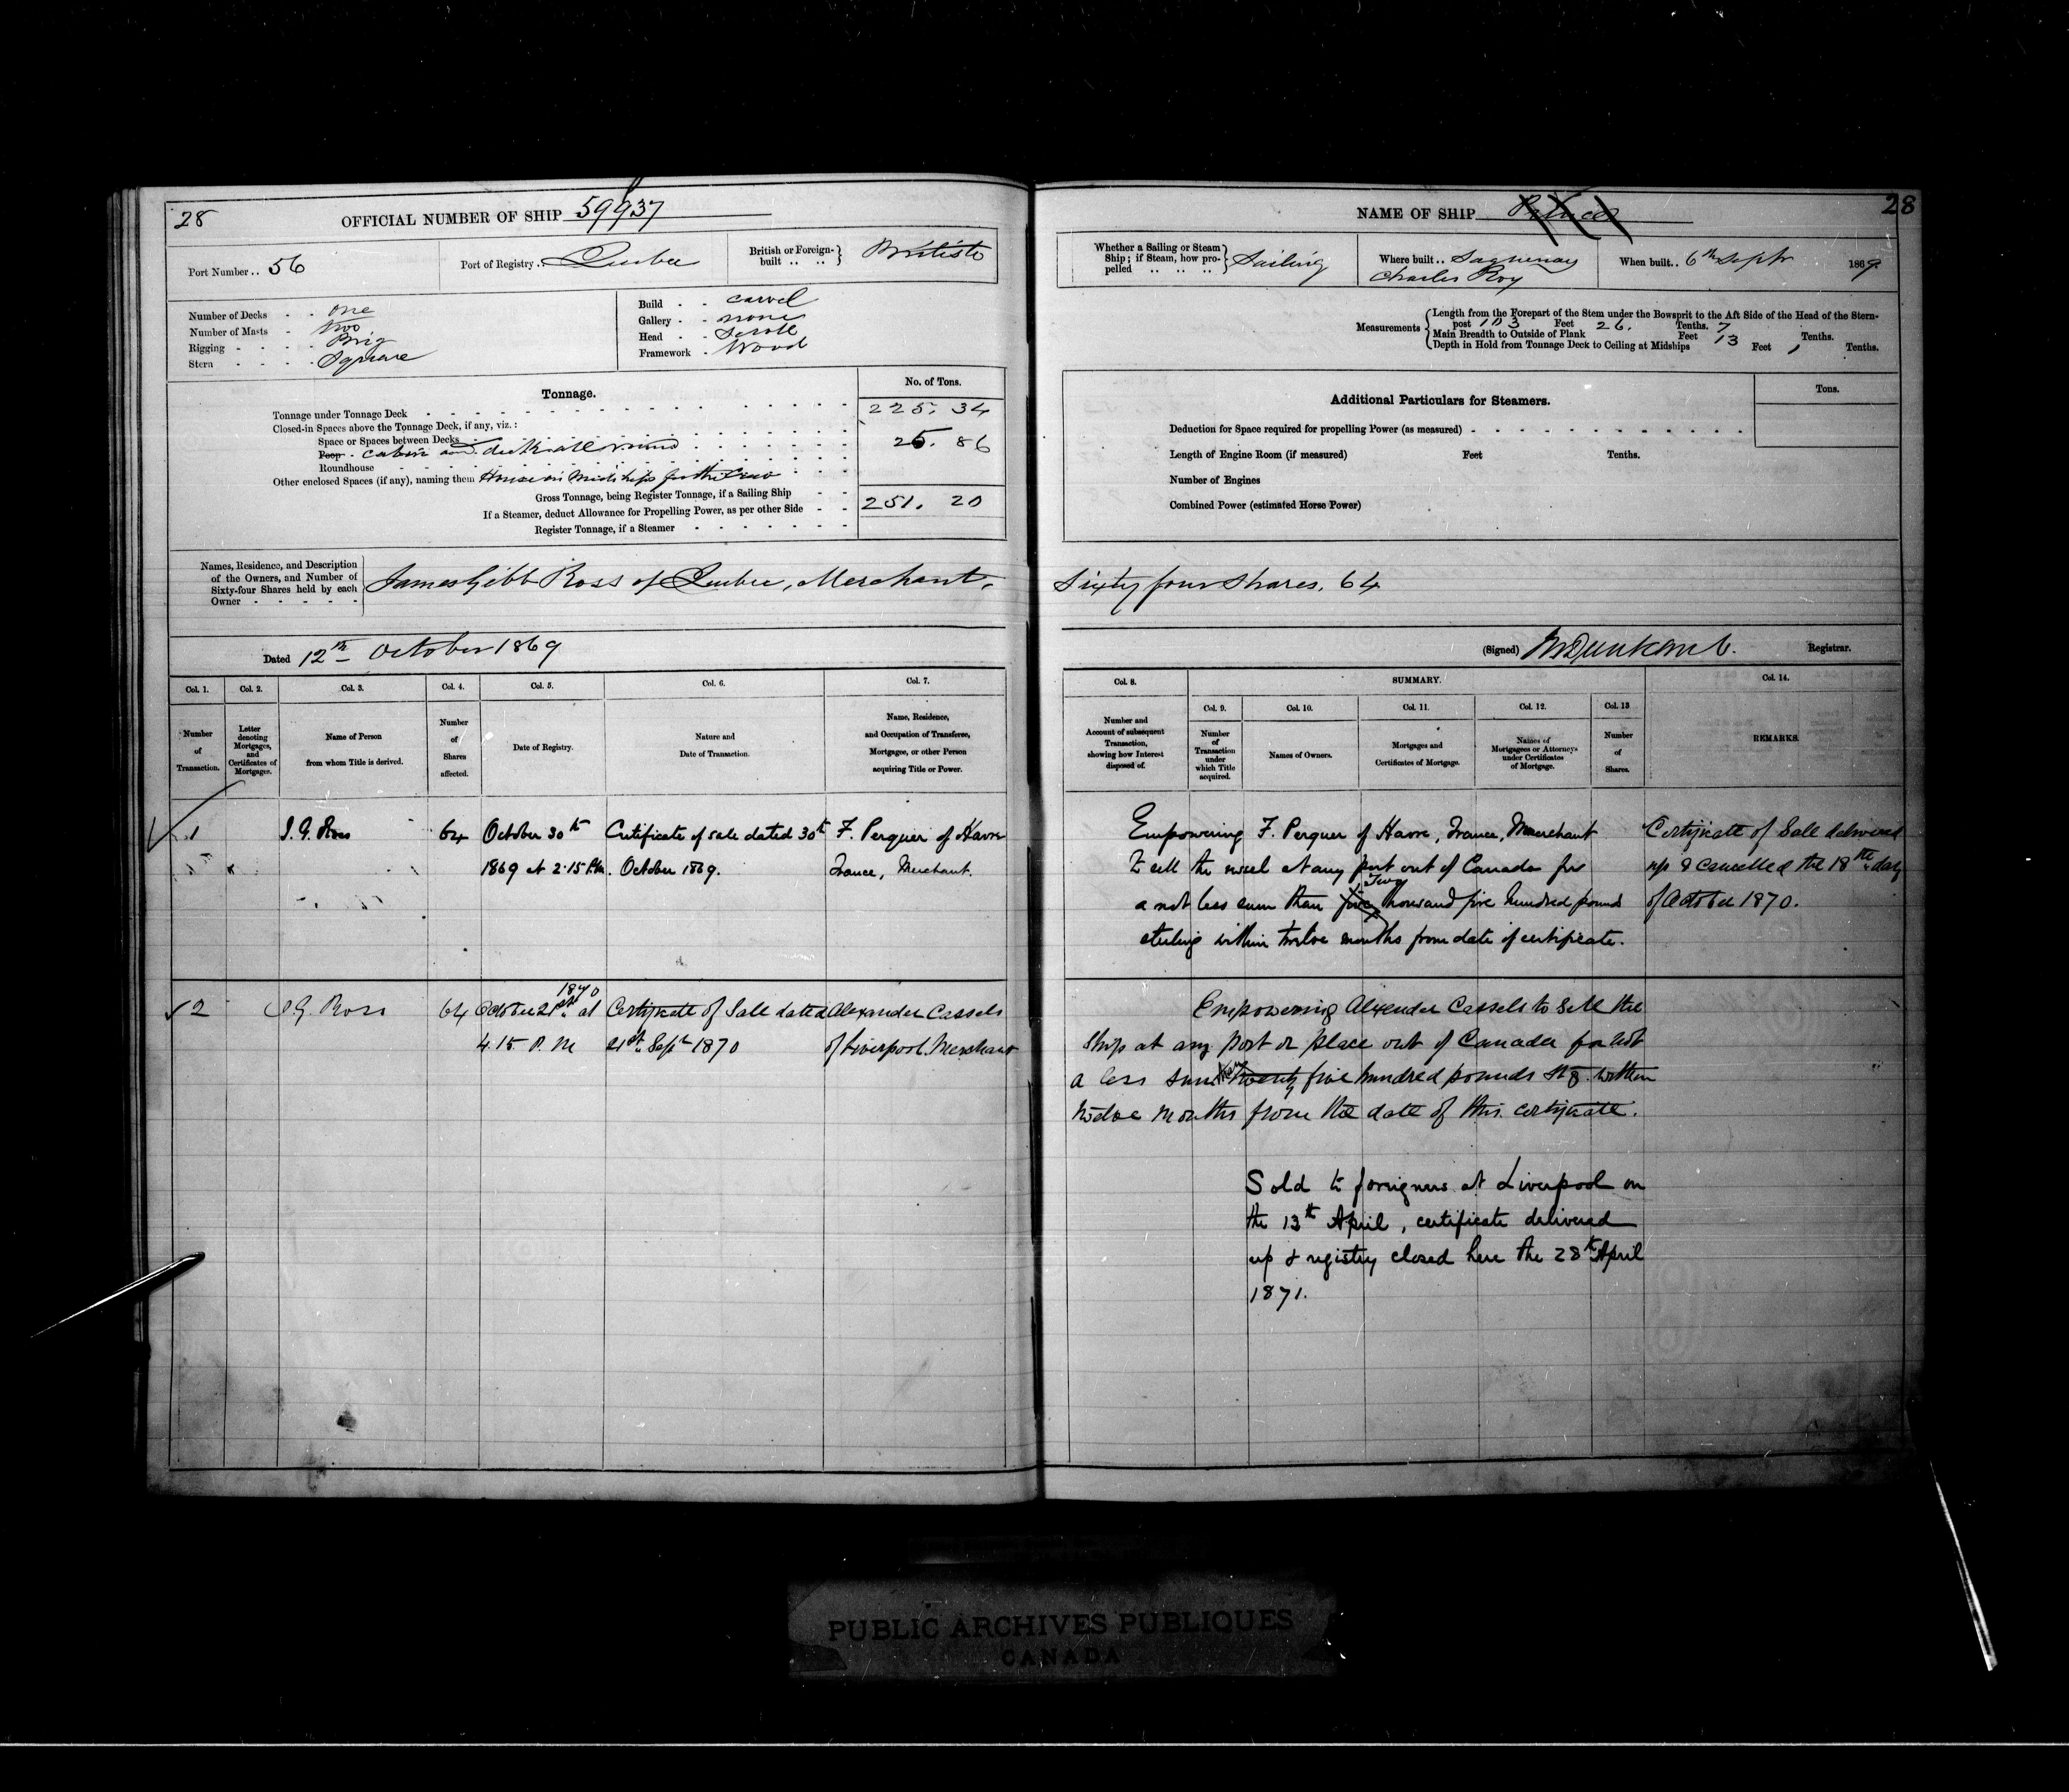 28
OFFICIAL NUMBER OF SHIP 59937
Port Number .. 56
Port of Registry .. Quebec
British or Foreign-built .. .. } British
Number of Decks - - One
Number of Masts - Two
Rigging - - - - Brig
Stern - - - - Square
Build - - carvel
Gallery - - none
Head - - Scroll
Framework - Wood
Tonnage.
No. of Tons.
Tonnage under Tonnage Deck 225. 34
Closed-in Spaces above the Tonnage Deck, if any, viz.:
Space or Spaces between Decks
Poop - cabin and 25. 86
Roundhouse
Other enclosed Spaces (if any), naming them House in Midships for the Crew
Gross Tonnage, being Register Tonnage, if a Sailing Ship - - 251. 20
If a Steamer, deduct Allowance for Propelling Power, as per other Side - -
Register Tonnage, if a Steamer
Names, Residence, and Description
of the Owners, and Number of
Sixty-four Shares held by each
Owner
James Gibb Ross of Quebec, Merchant,
Dated 12th October 1869
Col. 1. Col. 2. Col. 3. Col. 4. Col. 5. Col. 6. Col. 7.
Number of Transaction.
Letter denoting Mortgages, and Certificates of Mortgage.
Name of Person from whom Title is derived.
Number of Shares affected.
Date of Registry.
Nature and Date of Transaction.
Name, Residence, and Occupation of Transferee, Mortgagee, or other Person acquiring Title or Power.
1 J. G. Ross 64 October 30th Certificate of sale dated 30th F. Perquer of Havre
1869 at 2.15 P.M. October 1869. France, Merchant.
1870
2 J. G. Ross 64 October 21st at Certificate of Sale dated Alexander Cassels
4.15 P. M 21st Sept 1870 of Liverpool. Merchant
NAME OF SHIP
28
Whether a Sailing or Steam Ship; if Steam, how propelled .. .. .. } Sailing
Where built .. Saguenay
Charles Roy
When built .. 6th Septr 1869.
Measurements
Length from the Forepart of the Stem under the Bowsprit to the Aft Side of the Head of the Stern-
post 103 Feet 26. Tenths. 7
Main Breadth to Outside of Plank Feet 13 Tenths.
Depth in Hold from Tonnage Deck to Ceiling at Midships Feet 1 Tenths.
Additional Particulars for Steamers.
Tons.
Deduction for Space required for propelling Power (as measured)
Length of Engine Room (if measured) Feet Tenths.
Number of Engines
Combined Power (estimated Horse Power)
Sixty four Shares. 64
(Signed) Registrar.
Col. 8. SUMMARY. Col. 14.
Col. 9. Col. 10. Col. 11. Col. 12. Col. 13
Number and Account of subsequent Transaction, showing how Interest disposed of.
Number of Transaction under which Title acquired.
Names of Owners.
Mortgages and Certificates of Mortgage.
Names of Mortgagees or Attorneys under Certificates of Mortgage.
Number of Shares.
REMARKS.
Empowering F. Perquer of Havre, France, Merchant
to sell the vessel at any port out of Canada for
a not less sum than five Two thousand five hundred pounds
sterling within twelve months from date of certificate.
Certificate of Sale delivered
up & cancelled the 18th day
of October 1870.
Empowering Alexander Cassels to Sell the
Ship at any Port or place out of Canada for not
a less sum than twenty five hundred pounds Stg. within
twelve months from the date of this certificate.
Sold to foreigners at Liverpool on
the 13th April, certificate delivered
up & registry closed here the 28th April
1871.
PUBLIC ARCHIVES PUBLIQUES
CANADA